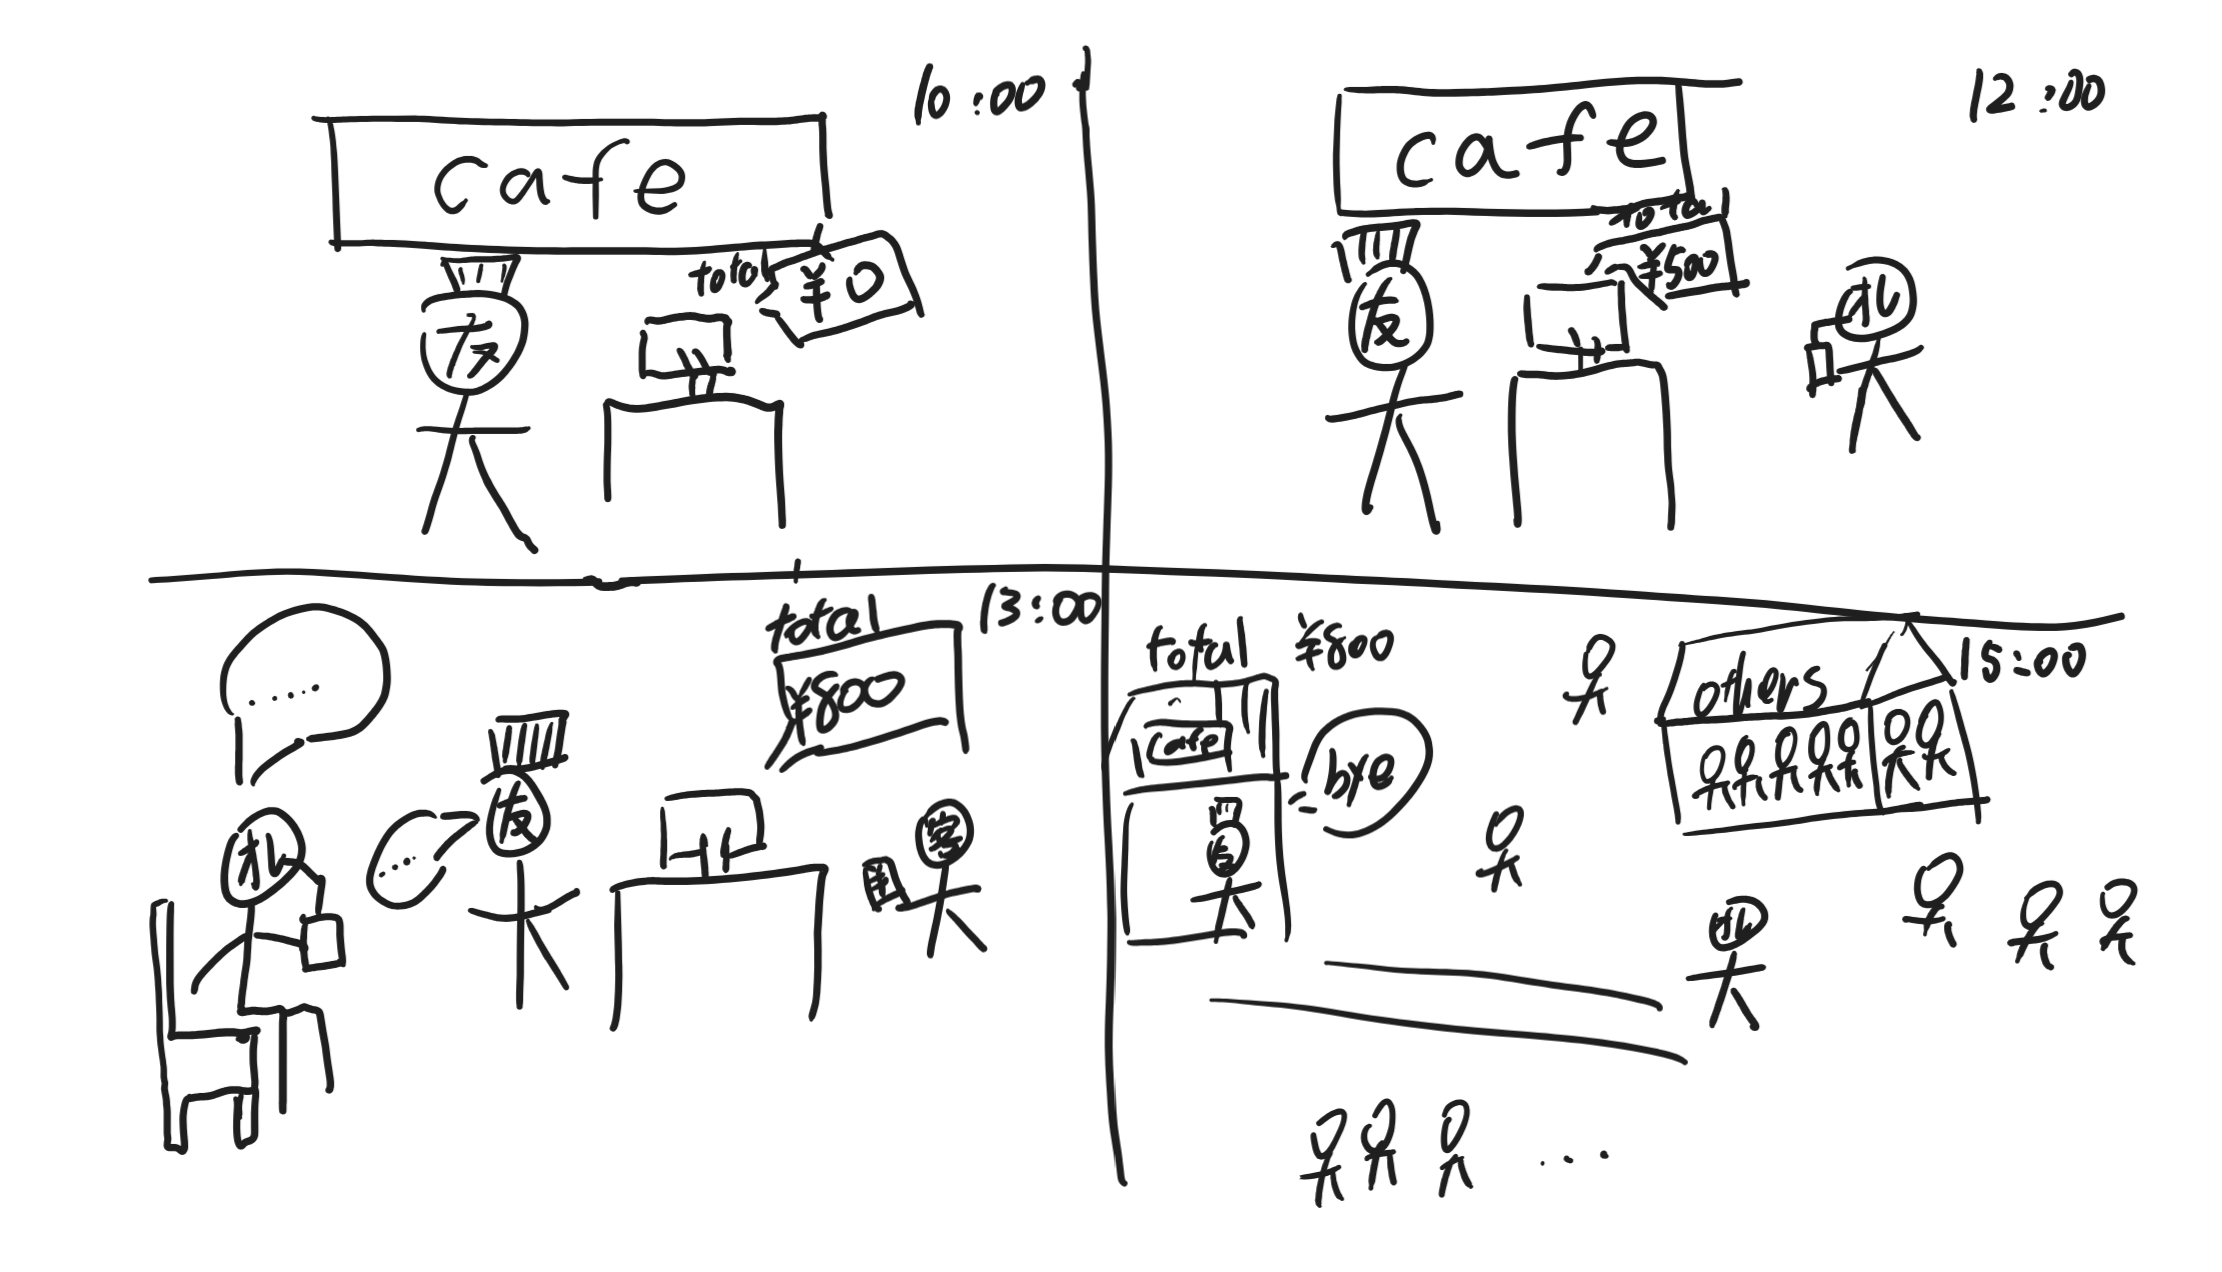 10:00
cafe
total
¥0
友
12:00
cafe
total
¥500
友
13:00
total
¥800
.....
....
友
客
15:00
total ¥800
cafe
bye
others
...